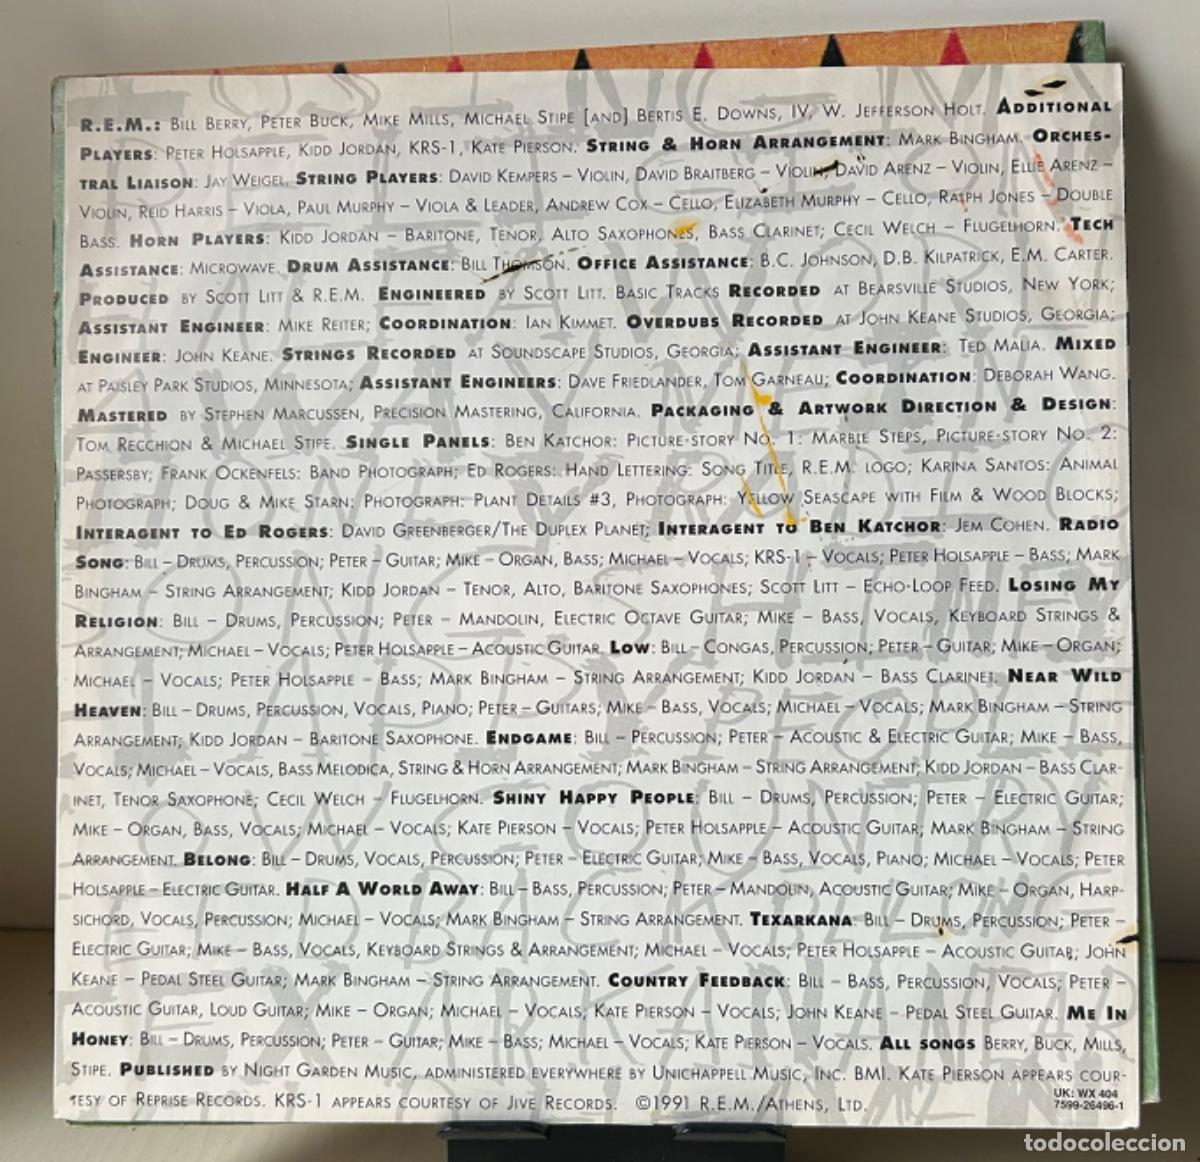 R.E.M.: Bill Berry, Peter Buck, Mike Mills, Michael Stipe [and] Bertis E. Downs, IV, W. Jefferson Holt. Additional
Players: Peter Holsapple, Kidd Jordan, KRS-1, Kate Pierson. String & Horn Arrangement: Mark Bingham. Orches-
tral Liaison: Jay Weigel. String Players: David Kempers – Violin, David Braitberg – Violin, David Arenz – Violin, Ellie Arenz –
Violin, Reid Harris – Viola, Paul Murphy – Viola & Leader, Andrew Cox – Cello, Elizabeth Murphy – Cello, Ralph Jones – Double
Bass. Horn Players: Kidd Jordan – Baritone, Tenor, Alto Saxophones, Bass Clarinet; Cecil Welch – Flugelhorn. Tech
Assistance: Microwave. Drum Assistance: Bill Thomson. Office Assistance: B.C. Johnson, D.B. Kilpatrick, E.M. Carter.
Produced by Scott Litt & R.E.M. Engineered by Scott Litt. Basic Tracks Recorded at Bearsville Studios, New York;
Assistant Engineer: Mike Reiter; Coordination: Ian Kimmet. Overdubs Recorded at John Keane Studios, Georgia;
Engineer: John Keane. Strings Recorded at Soundscape Studios, Georgia; Assistant Engineer: Ted Malia. Mixed
at Paisley Park Studios, Minnesota; Assistant Engineers: Dave Friedlander, Tom Garneau; Coordination: Deborah Wang.
Mastered by Stephen Marcussen, Precision Mastering, California. Packaging & Artwork Direction & Design:
Tom Recchion & Michael Stipe. Single Panels: Ben Katchor: Picture-story No. 1: Marble Steps, Picture-story No. 2:
Passersby; Frank Ockenfels: Band Photograph; Ed Rogers: Hand Lettering: Song Title, R.E.M. logo; Karina Santos: Animal
Photograph; Doug & Mike Starn: Photograph: Plant Details #3, Photograph: Yellow Seascape with Film & Wood Blocks;
Interagent to Ed Rogers: David Greenberger/The Duplex Planet; Interagent to Ben Katchor: Jem Cohen. Radio
Song: Bill – Drums, Percussion; Peter – Guitar; Mike – Organ, Bass; Michael – Vocals; KRS-1 – Vocals; Peter Holsapple – Bass; Mark
Bingham – String Arrangement; Kidd Jordan – Tenor, Alto, Baritone Saxophones; Scott Litt – Echo-Loop Feed. Losing My
Religion: Bill – Drums, Percussion; Peter – Mandolin, Electric Octave Guitar; Mike – Bass, Vocals, Keyboard Strings &
Arrangement; Michael – Vocals; Peter Holsapple – Acoustic Guitar. Low: Bill – Congas, Percussion; Peter – Guitar; Mike – Organ;
Michael – Vocals; Peter Holsapple – Bass; Mark Bingham – String Arrangement; Kidd Jordan – Bass Clarinet. Near Wild
Heaven: Bill – Drums, Percussion, Vocals, Piano; Peter – Guitars; Mike – Bass, Vocals; Michael – Vocals; Mark Bingham – String
Arrangement; Kidd Jordan – Baritone Saxophone. Endgame: Bill – Percussion; Peter – Acoustic & Electric Guitar; Mike – Bass,
Vocals; Michael – Vocals, Bass Melodica, String & Horn Arrangement; Mark Bingham – String Arrangement; Kidd Jordan – Bass Clar-
inet, Tenor Saxophone; Cecil Welch – Flugelhorn. Shiny Happy People: Bill – Drums, Percussion; Peter – Electric Guitar;
Mike – Organ, Bass, Vocals; Michael – Vocals; Kate Pierson – Vocals; Peter Holsapple – Acoustic Guitar; Mark Bingham – String
Arrangement. Belong: Bill – Drums, Vocals, Percussion; Peter – Electric Guitar; Mike – Bass, Vocals, Piano; Michael – Vocals; Peter
Holsapple – Electric Guitar. Half A World Away: Bill – Bass, Percussion; Peter – Mandolin, Acoustic Guitar; Mike – Organ, Harp-
sichord, Vocals, Percussion; Michael – Vocals; Mark Bingham – String Arrangement. Texarkana: Bill – Drums, Percussion; Peter –
Electric Guitar; Mike – Bass, Vocals, Keyboard Strings & Arrangement; Michael – Vocals; Peter Holsapple – Acoustic Guitar; John
Keane – Pedal Steel Guitar; Mark Bingham – String Arrangement. Country Feedback: Bill – Bass, Percussion, Vocals; Peter –
Acoustic Guitar, Loud Guitar; Mike – Organ; Michael – Vocals, Kate Pierson – Vocals; John Keane – Pedal Steel Guitar. Me In
Honey: Bill – Drums, Percussion; Peter – Guitar; Mike – Bass; Michael – Vocals; Kate Pierson – Vocals. All songs Berry, Buck, Mills,
Stipe. Published by Night Garden Music, administered everywhere by Unichappell Music, Inc. BMI. Kate Pierson appears cour-
tesy of Reprise Records. KRS-1 appears courtesy of Jive Records. ©1991 R.E.M./Athens, Ltd.
UK: WX 404
7599-26496-1
todocoleccion